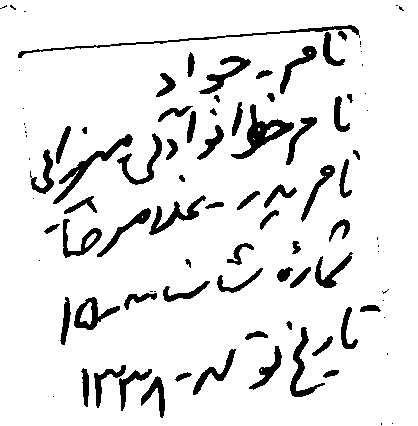 نام - جواد
نام خانوادگی میرزائی
نام پدر - غلامرضا
شماره ش ش - ۱۵
تاریخ تولد - ۱۳۳۸